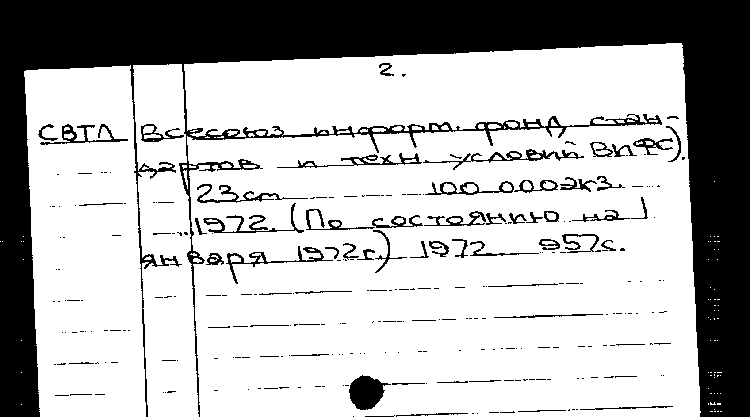 2.
СВТЛ Всесоюз информ. фонд стан-
дартов и техн. условий ВИФС).
23см 100 000экз.
1972. (По состоянию на 1
января 1972г.) 1972 957с.